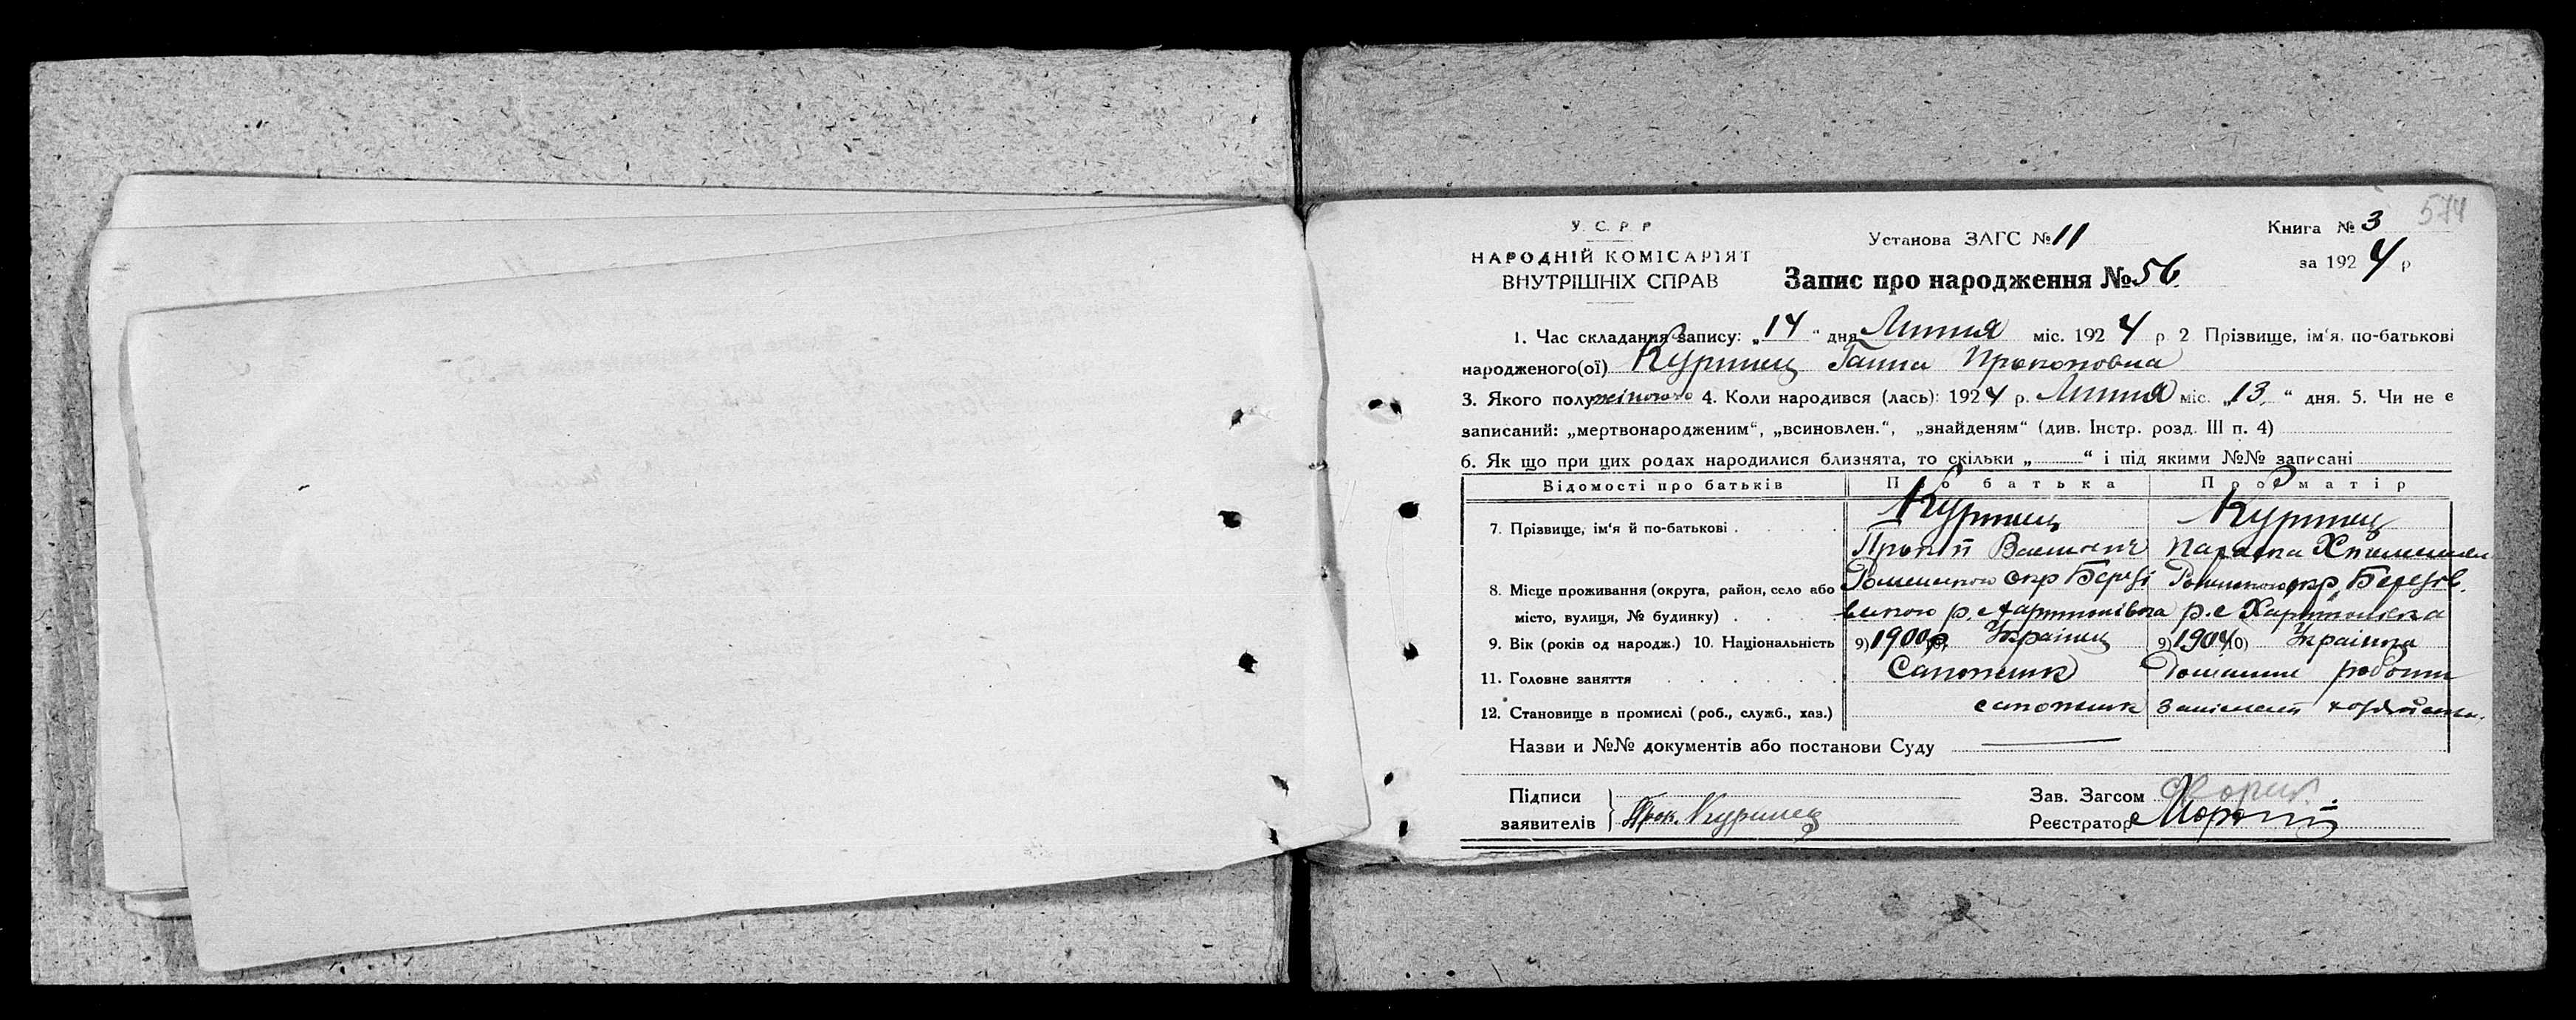 574
У. С. Р. Р
НАРОДНІЙ КОМІСАРІЯТ
ВНУТРІШНІХ СПРАВ
Установа ЗАГС № 11
Книга № 3
за 1924 р
Запис про народження № 56
1. Час складання запису: „14“ дня Липня міс. 1924 р. 2 Прізвище, ім'я, по-батькові
народженого(ої) Куринец Ганна Прокоповна
3. Якого полу жіночого 4. Коли народився (лась): 1924 р. Липня міс. „13“ дня. 5. Чи не є
записаний: „мертвонародженим“, „всиновлен.“, „знайденям“ (див. Інстр. розд. III п. 4)
6. Як що при цих родах народилися близнята, то скільки „ “ і під якими №№ записані
Відомості про батьків Про батька Про матір
7. Прізвище, ім'я й по-батькові Куринец Куринец
Прокіп Параска
8. Місце проживання (округа, район, село або Роменської окр Березі Роменської окр. Березів.
місто, вулиця, № будинку) вської р. Хартонівка р. с
9. Вік (років од народж.) 10. Національність 9) 1900 10) Українец 9) 1904 10) Українка
11. Головне заняття Сапожник Домашні роботи
12. Становище в промислі (роб., служб., хаз.) сапожник
Назви и №№ документів або постанови Суду
Підписи
заявителів Прок. Куринец
Зав. Загсом
Реєстратор